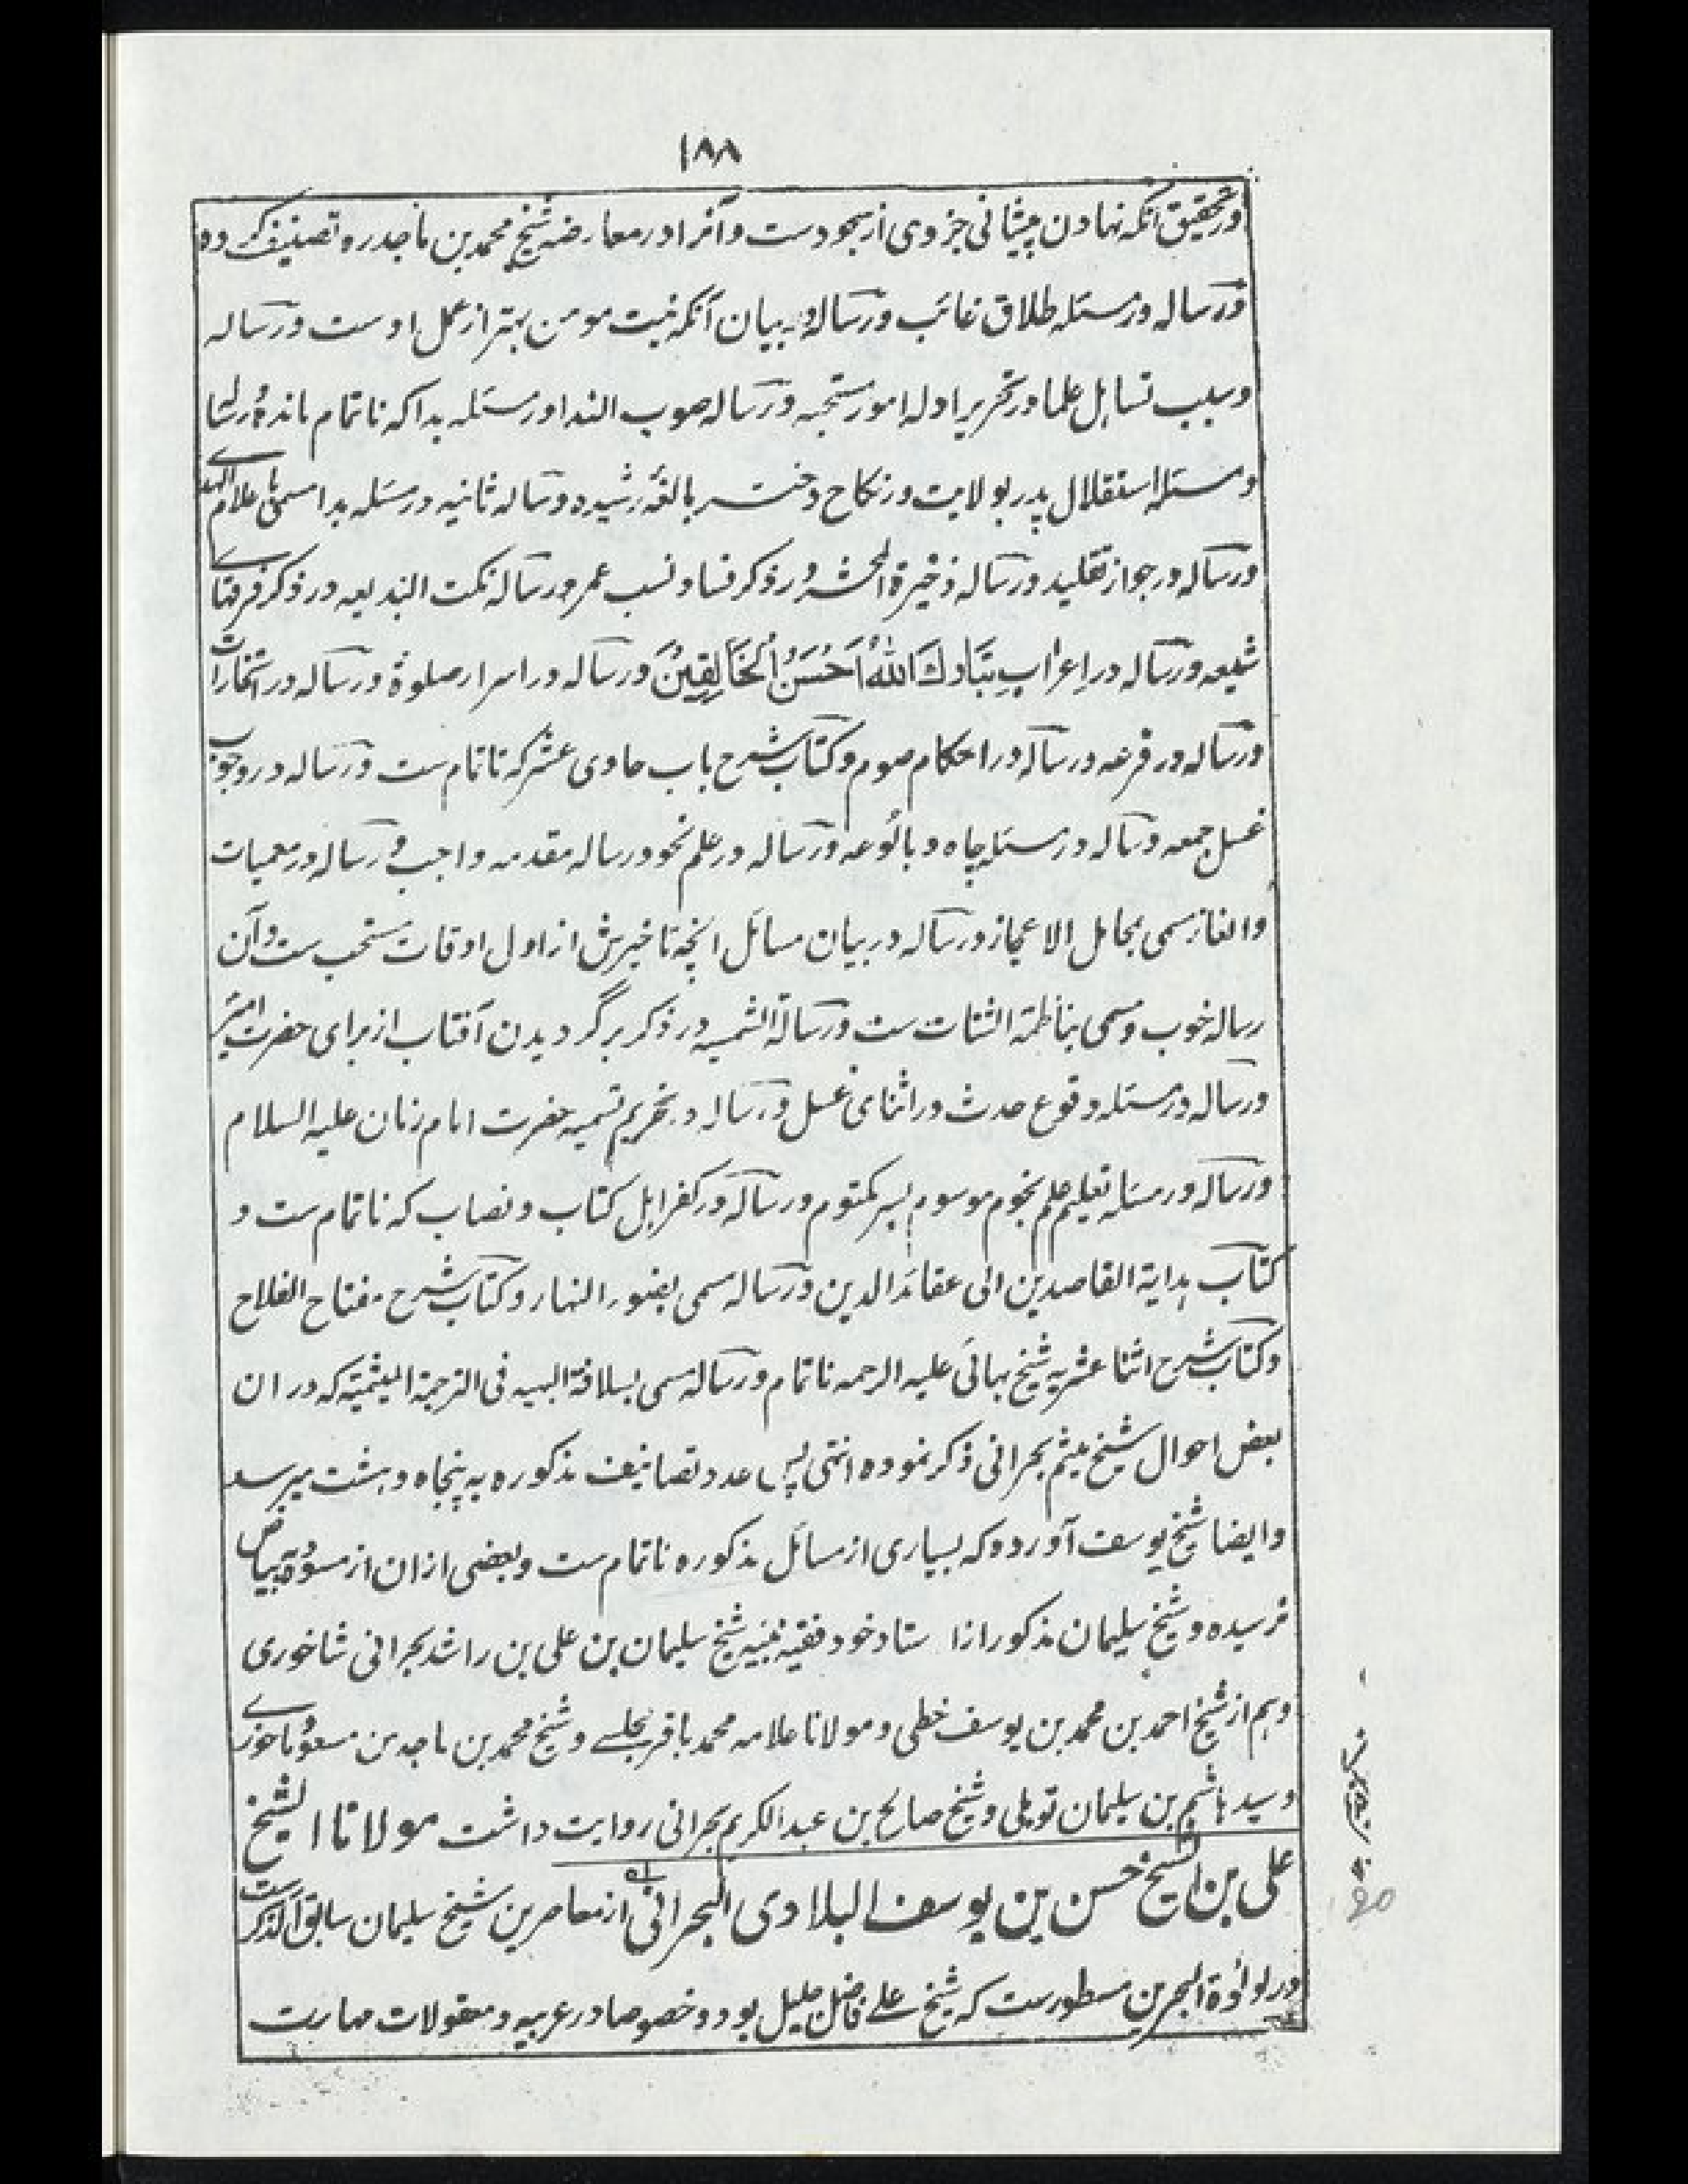 ۱۸۸
در تحقیق آنکه نهادن پیشانی جزوی از سجودست و آنرا در معارضه شیخ محمد بن ماجد رو تصنیف کرده
و رساله در مسئله طلاق غائب و رساله در بیان آنکه نیت مومن بهتر از عمل اوست و رساله
در سبب تساهل علما در تحریر ادله امور مستحبه و رساله صوب الندا در مسئله بدا که ناتمام مانده و رساله
در مسئله استقلال پدر بولایت در نکاح دختر بالغه رشیده و رساله ثانیه در مسئله بدا مسمی باعلام الهدی
و رساله در جواز تقلید و رساله ذخیرة المحشر در ذکر فساد نسب عمر و رساله نکت البدیعه در ذکر فرقهای
شیعه و رساله در اعراب تَبَارَكَ اللهُ اَحْسَنُ الْخَالِقِيْنَ و رساله در اسرار صلوة و رساله در استخارات
و رساله در قرعه و رساله در احکام صوم و کتاب شرح باب حادی عشر که ناتمام ست و رساله در وجوب
غسل جمعه و رساله در مسئله چاه و بالوعه و رساله در علم نحو و رساله مقدمه واجب و رساله در معمیات
و الغاز مسمی بحامل الاعجاز و رساله در بیان مسائل آنچه تاخیرش از اول اوقات مستحب ست و آن
رساله خوب و مسمی بناظمة الشتات ست و رسالة الشمسیه در ذکر برگردیدن آفتاب از برای حضرت امیر
و رساله در مسئله وقوع حدث در اثنای غسل و رساله در تحریم تسمیه حضرت امام زمان علیه السلام
و رساله در مسئله تعلیم علم نجوم موسوم بسر مکتوم و رساله در کفر اهل کتاب و نصاب که ناتمام ست و
کتاب هدایة القاصدین الی عقائد الدین و رساله مسمی بضوء النهار و کتاب شرح مفتاح الفلاح
و کتاب شرح اثنا عشریه شیخ بهائی علیه الرحمه ناتمام و رساله مسمی بسلافة البهیه فی الترجمة المیثمیة که در ان
بعض احوال شیخ میثم بحرانی ذکر نموده انتهی پس عدد تصانیف مذکوره به پنجاه و هشت میرسد
و ایضا شیخ یوسف آورده که بسیاری از رسائل مذکوره ناتمام ست و بعضی ازان از مسوده بیاض
نرسیده و شیخ سلیمان مذکور از استاد خود فقیه نبیه شیخ سلیمان بن علی بن راشد بحرانی شاخوری
و هم از شیخ احمد بن محمد بن یوسف خطی و مولانا علامه محمد باقر مجلسے و شیخ محمد بن ماجد بن مسعود ماحوزے
و سید هاشم بن سلیمان توبلی و شیخ صالح بن عبد الکریم بحرانی روایت داشت مولانا الشیخ
علی بن الشیخ حسن بن یوسف البلادی البحرانی از معاصرین شیخ سلیمان سابق الذکر ست
در لولوة البحرین مسطورست که شیخ علے فاضل جلیل بود و خصوصا در عربیه و معقولات مهارت